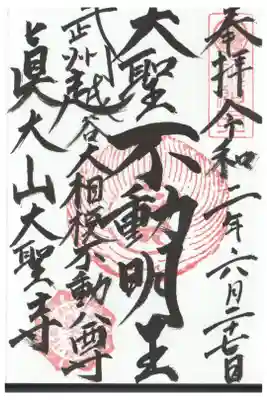 奉拝令和二年六月二十七日
大聖不動明王
武州越谷大相模不動尊
真大山大聖寺